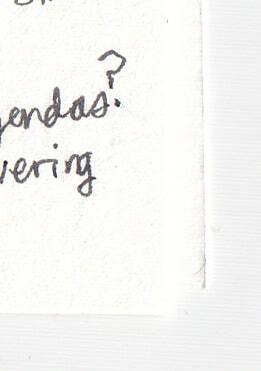 gendas?
vering